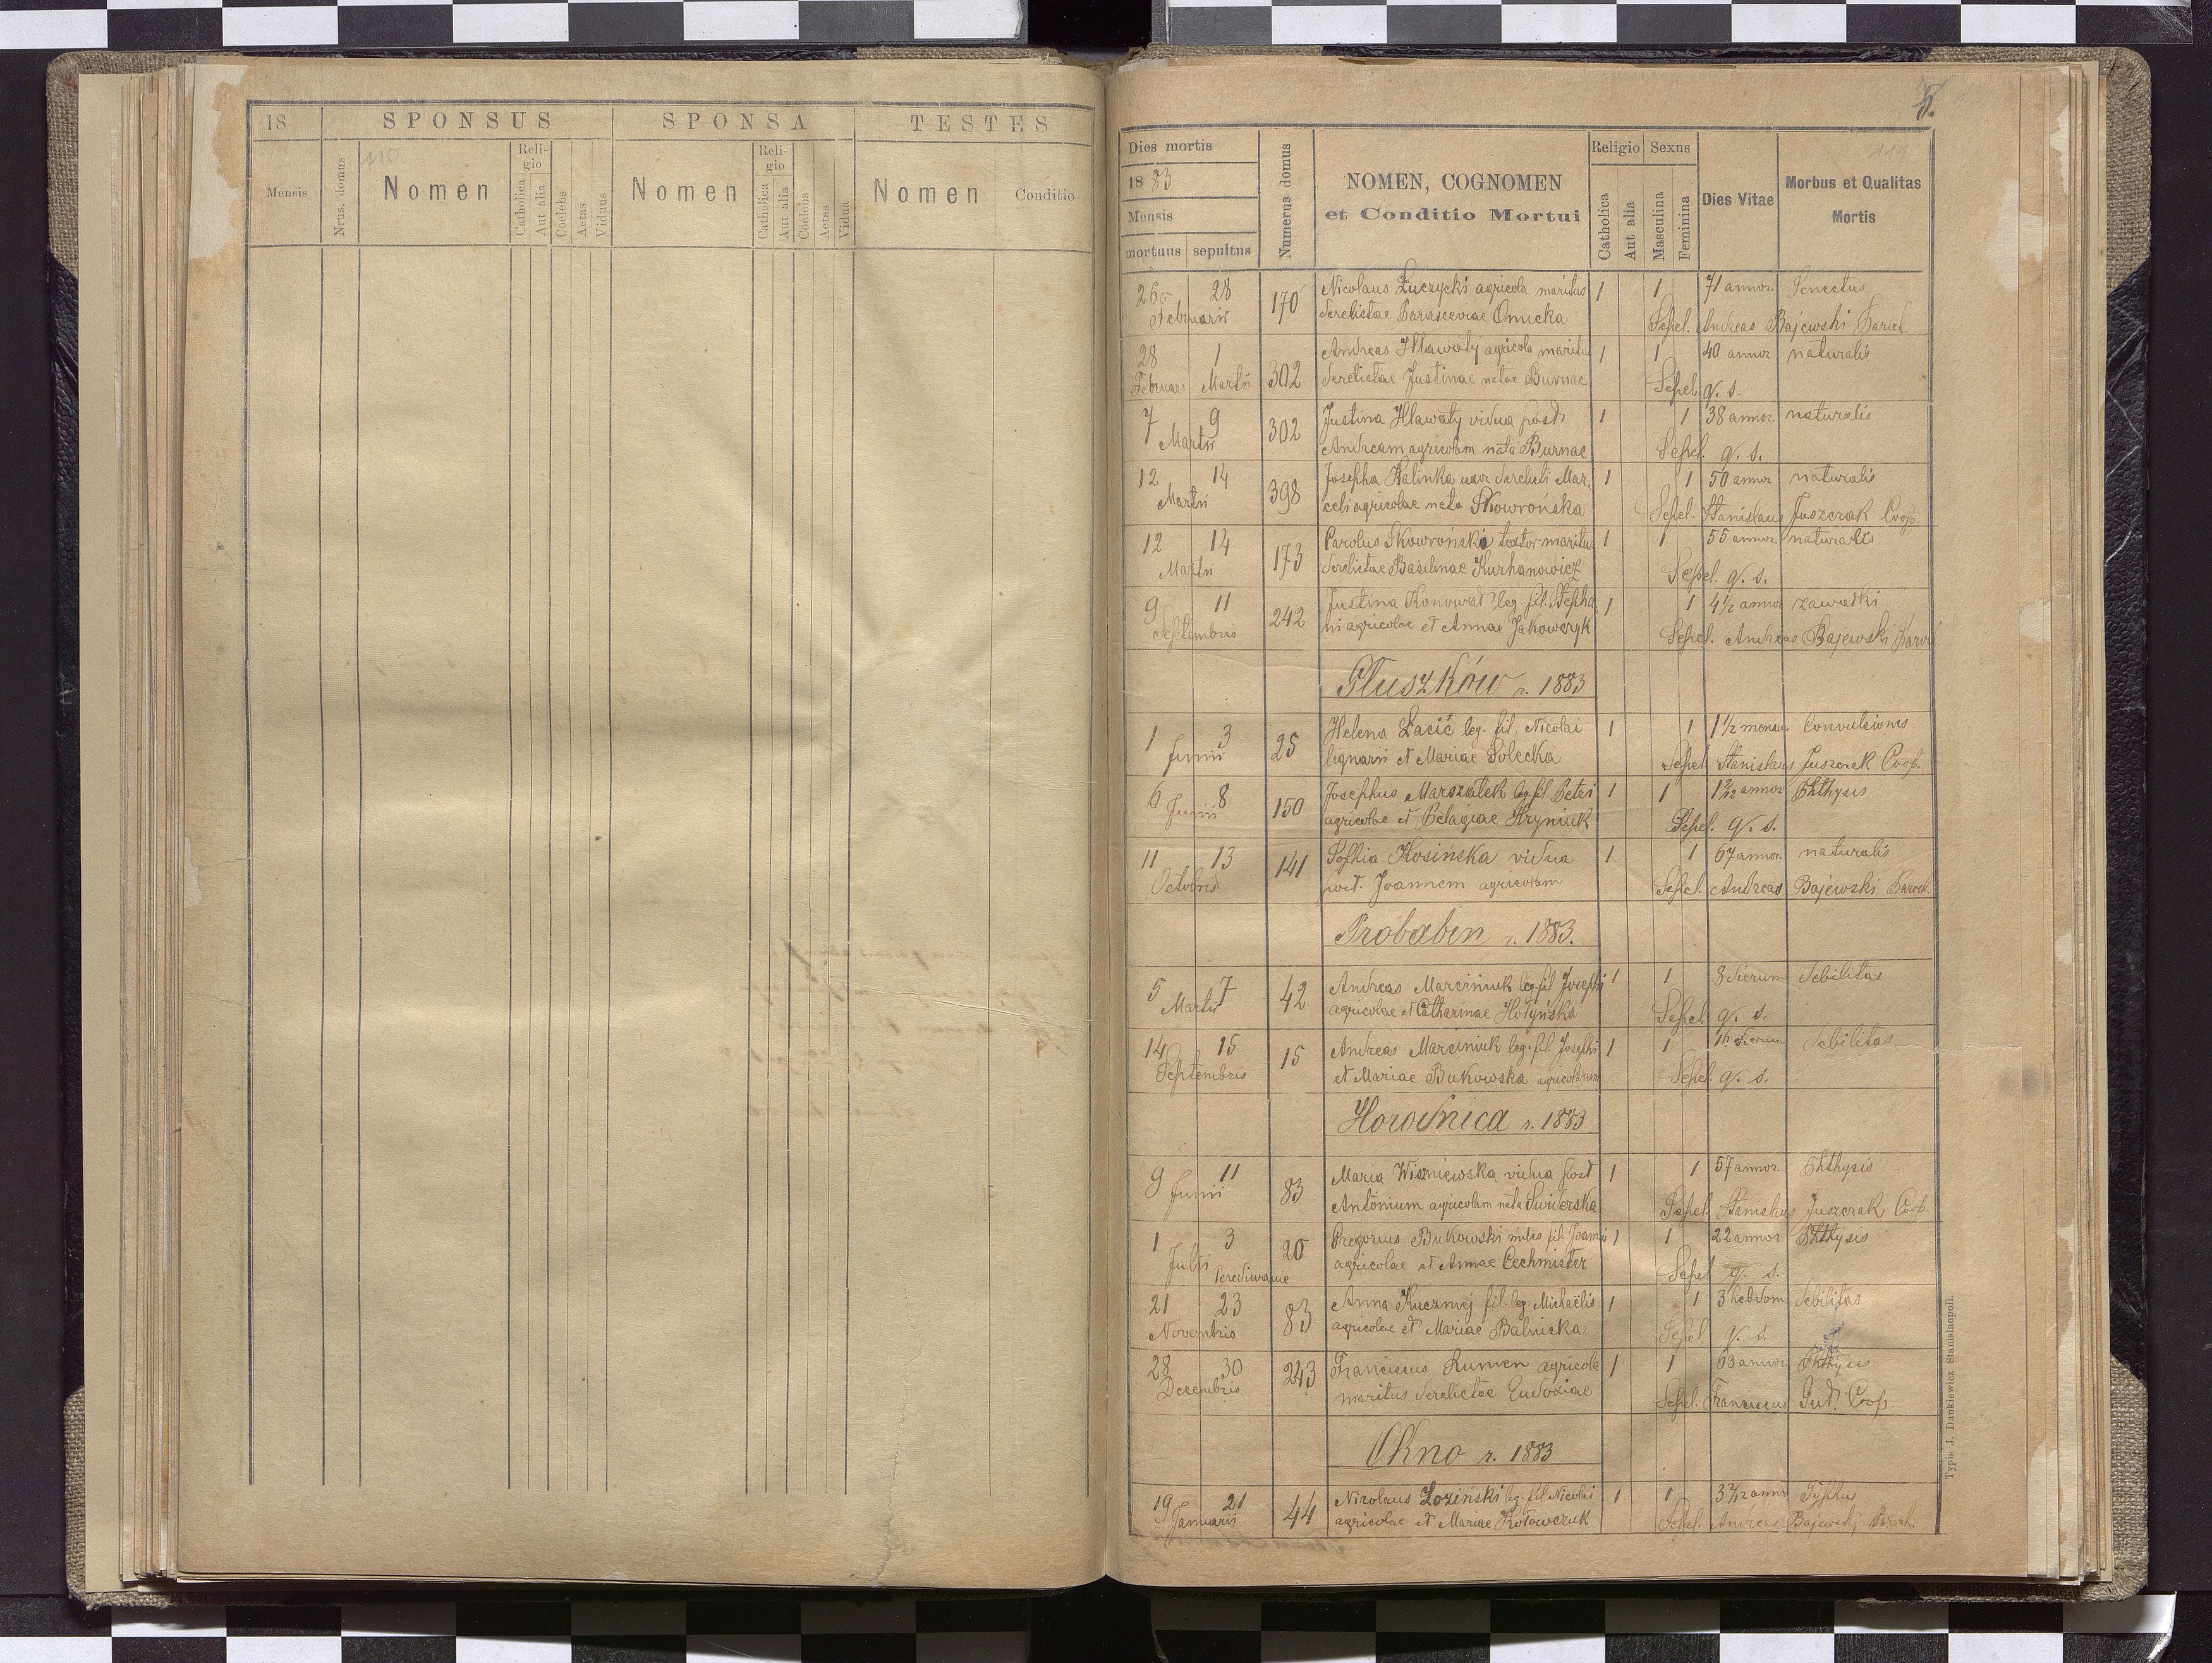 18
SPONSUS
SPONSA
TESTES
110
Mensis
Nrus. domus
Nomen
Religio
Catholica
Aut alia
Coelebs
Aetus
Viduus
Nomen
Religio
Catholica
Aut alia
Coelebs
Aetas
Vidua
Nomen
Conditio
75.
111
Dies mortis
1883
Mensis
mortuus sepultus
Numerus domus
NOMEN, COGNOMEN
et Conditio Mortui
Religio
Catholica
Aut alia
Sexus
Masculina
Feminina
Dies Vitae
Morbus et Qualitas
Mortis
26 28 170 Nicolaus Łuczycki agricola maritus 1 1 71 annor. Senectus
Februarii derelictae Parasceviae Onucka Sepel. Andreas Bajewski Paroch.
28 1 302 Andreas Hlawaty agricola maritus 1 1 40 annor naturalis
Februari Martii derelictae Justinae natae Burnac Sepel. q. s.
7 9 302 Justina Hlawaty vidua post 1 1 38 annor. naturalis
Martii Andream agricolam nata Burnac Sepel. q. s.
12 14 398 Josepha Halinka uxor derelicti Mar. 1 1 50 annor naturalis
Martii celi agricolae nata Skowrońska Sepel. Stanislaus Juszczak Coop.
12 14 173 Carolus Skowroński textor maritus 1 1 55 annor. naturalis
Martii derelictae Basilinae Kurhanowicz Sepel. q. s.
9 11 242 Justina Konowad leg. fil. Stepha 1 1 4½ annor zawadki
Septembris ni agricolae et Annae Jakowczyk Sepel. Andreas Bajewski Paroch
Głuszków r. 1883
1 3 25 Helena Łacić leg. fil. Nicolai 1 1 1½ mensu Convulsiones
Junii lignarii et Mariae Solecka Sepel Stanislaus Juszczak Coop.
6 8 150 Josephus Marszałek leg. fil Petri 1 1 1 2/12 annor Phthysis
Junii agricolae et Pelagiae Hryniuk Sepel. q. s.
11 13 141 Sophia Kosińska vidua 1 1 67 annor. naturalis
Octobris post. Joannem agricolam Sepel. Andreas Bajewski Paroch.
Probabin r. 1883.
5 7 42 Andreas Marciniuk leg. fil Josephi 1 1 8 dierum debilitas
Martii agricolae et Catharinae Hołyńska Sepel q. s.
14 15 15 Andreas Marciniuk leg. fil. Josephi 1 1 dierum debilitas
Septembris et Mariae Bukowska agricolarum Sepel q. s.
Horodnica r. 1883
9 11 83 Maria Wiśniewska vidua post 1 1 57 annor. Phthysis
Junii Antonium agricolam nata Świderska Sepel Stanislaus Juszczak Coop
1 3 20 Gregorius Bukowski miles fil. Joannis 1 1 22 annor Phthysis
Julii Perediwanie agricolae et Annae Cechmister Sepel q. s.
21 23 83 Anna Kuczmij fil. leg. Michaëlis 1 1 3 hebdom debilitas
Novembris agricolae et Mariae Balnicka Sepel q. s.
28 30 243 Franciscus Rumen agricola 1 1 63 annor Phthysis
Decembris maritus derelictae Eudoxiae Sepel. Franciscus Coop.
Okno r. 1883
19 21 44 Nicolaus Łoziński leg. fil Nicolai 1 1 3 7/12 annor Typhus
Januarii agricolae et Mariae Kołowczuk Sepel. Andreas Bajewski Paroch.
Typis J. Dankiewicz Stanislaopoli.